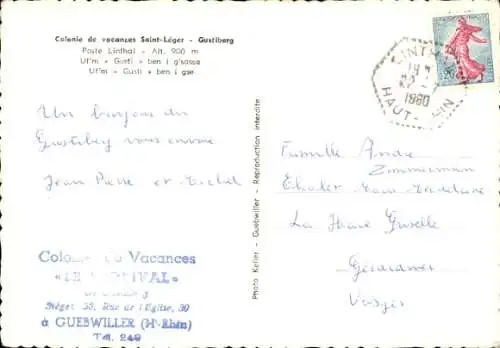 Colonie de vacances Saint-Léger - Gustiberg
Poste Linthal - Alt. 900 m
Uf'm - Gusti - ben i g'sasse
Uf'm - Gusti - ben i gse
Un bonjour du
Gustiberg vous envoie
Jean Pierre et Michel
Colonie de Vacances
Siège: 33, Rue de l'Eglise, 30
à GUEBWILLER (Ht-Rhin)
Tél. 249
Photo Keller - Guebwiller - Reproduction interdite
LINTHAL
1960
HAUT-RHIN
0,20
Famille André
Zimmermann
Chalet
La Haie Griselle
Gérardmer
Vosges